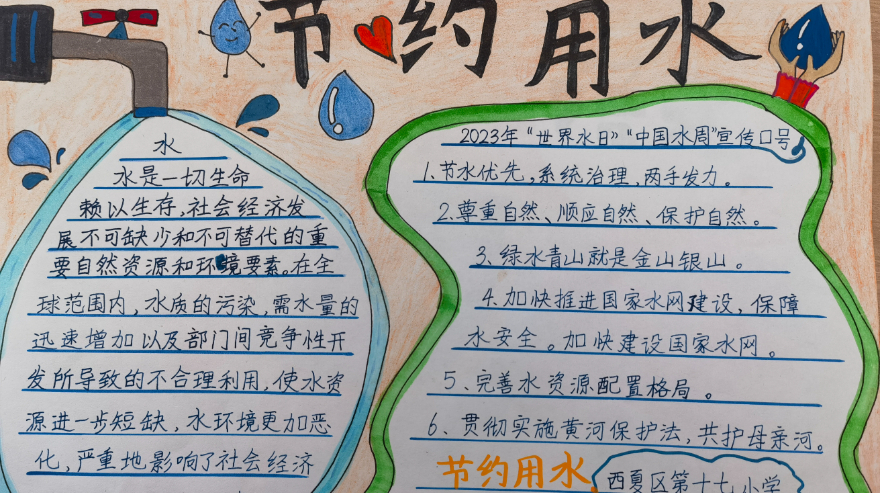 节约用水
水
水是一切生命
赖以生存,社会经济发
展不可缺少和不可替代的重
要自然资源和环境要素。在全
球范围内,水质的污染,需水量的
迅速增加以及部门间竞争性开
发所导致的不合理利用,使水资
源进一步短缺,水环境更加恶
化,严重地影响了社会经济
2023年"世界水日》"中国水周"宣传口号
1、节水优先,系统治理,两手发力。
2、尊重自然、顺应自然、保护自然。
3、绿水青山就是金山银山。
4、加快推进国家水网建设,保障
水安全。加快建设国家水网。
5、完善水资源配置格局。
6、贯彻实施黄河保护法,共护母亲河。
节约用水
西夏区第十七小学